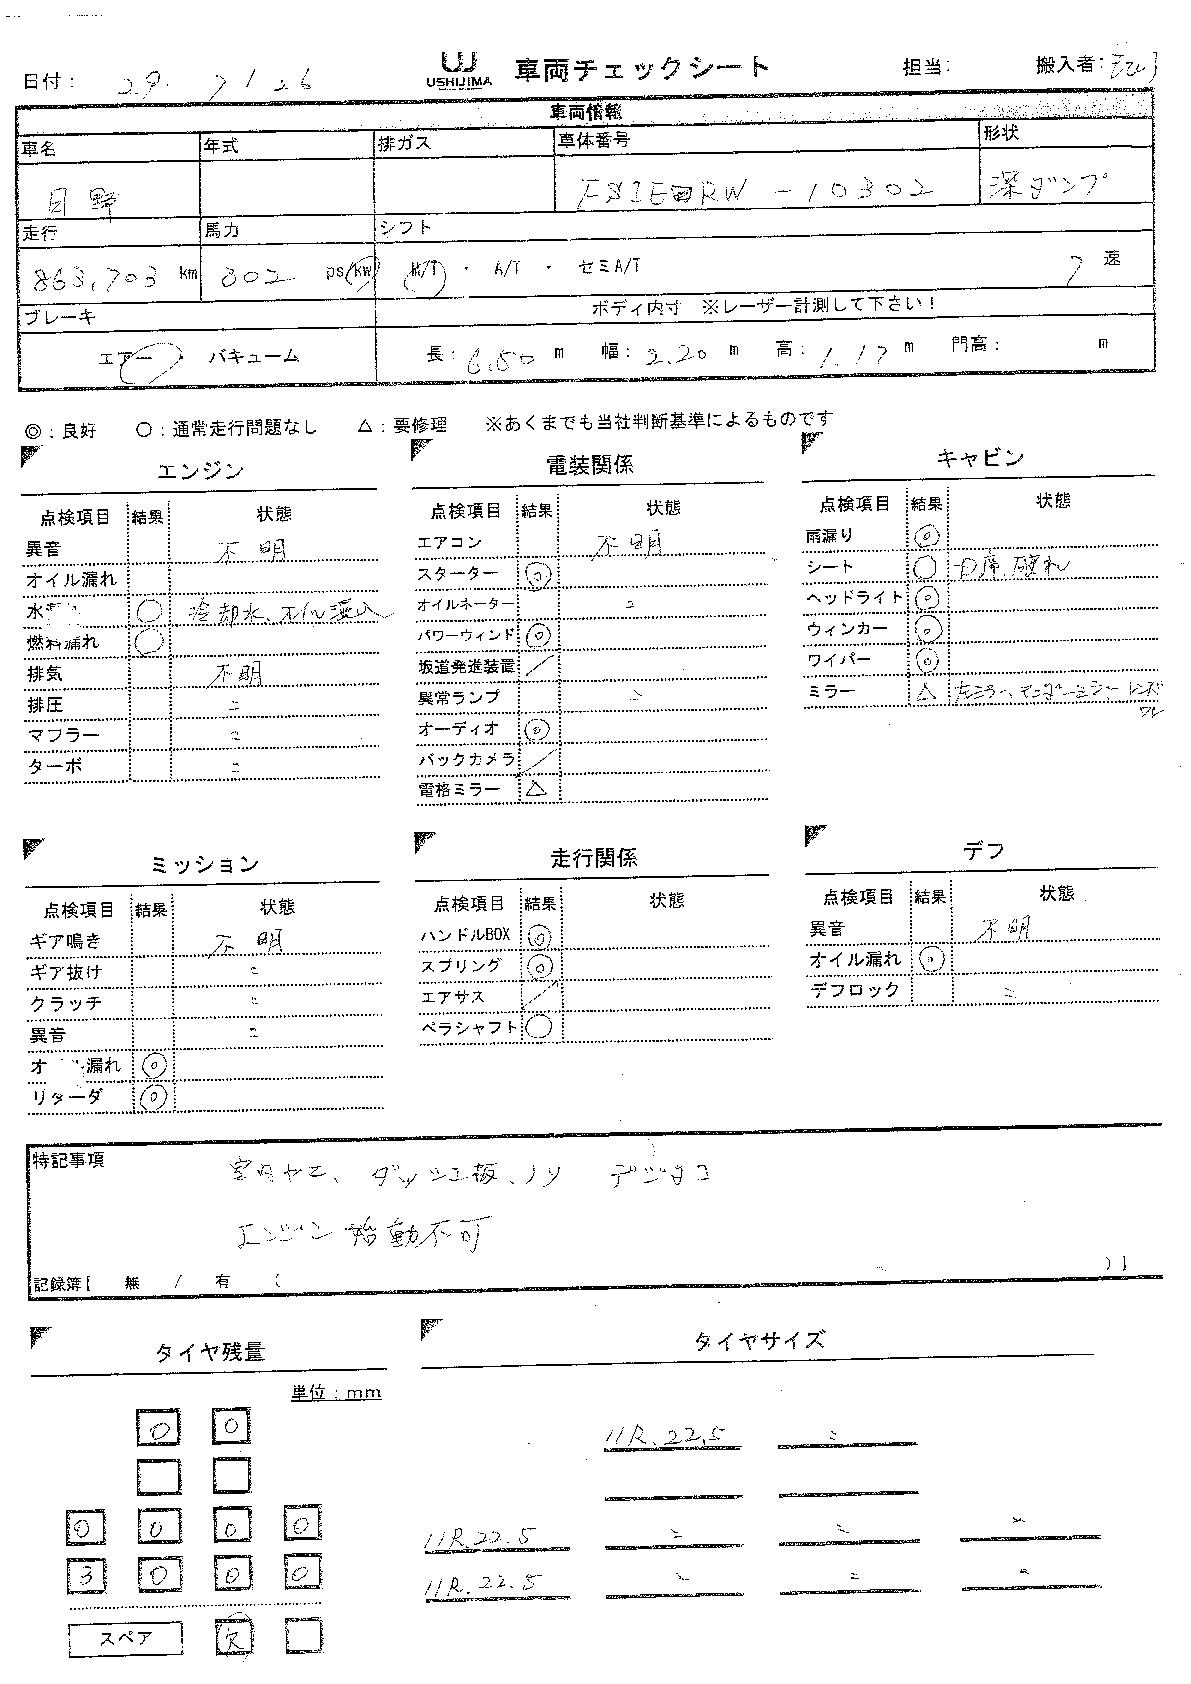 日付: 29. 7/26 USHIJIMA 車両チェックシート 担当: 搬入者:
車両情報
車名 年式 排ガス 車体番号 形状
日野 -10302 深ダンプ
走行 馬力 シフト
863,703 km 302 ps/kw M/T ・ A/T ・ セミA/T 7 速
ブレーキ ボディ内寸 ※レーザー計測して下さい！
エアー バキューム 長: 6.50 m 幅: 2.20 m 高: 1.17 m 門高: m
◎:良好 ○:通常走行問題なし △:要修理 ※あくまでも当社判断基準によるものです
エンジン
点検項目 結果 状態
異音 不明
オイル漏れ
水 ○ 冷却水、オイル混入
燃料漏れ ○
排気 不明
排圧 〃
マフラー 〃
ターボ 〃
電装関係
点検項目 結果 状態
エアコン 不明
スターター ◎
オイルネーター 〃
パワーウィンド ◎
坂道発進装置 /
異常ランプ 〃
オーディオ ◎
バックカメラ /
電格ミラー △
キャビン
点検項目 結果 状態
雨漏り ◎
シート ○ 破れ
ヘッドライト ◎
ウィンカー ◎
ワイパー ◎
ミラー △ 左ミラー、アンダーミラー レンズ
ワレ
ミッション
点検項目 結果 状態
ギア鳴き 不明
ギア抜け 〃
クラッチ 〃
異音 〃
オイル漏れ ◎
リターダ ◎
走行関係
点検項目 結果 状態
ハンドルBOX ◎
スプリング ◎
エアサス /
ペラシャフト ○
デフ
点検項目 結果 状態
異音 不明
オイル漏れ ◎
デフロック 〃
特記事項 室内ヤニ、ダッシュ板、ノリ デジタコ
エンジン始動不可
記録簿【 無 / 有 ( )】
タイヤ残量
単位:mm
0 0
0 0 0 0
3 0 0 0
スペア 欠
タイヤサイズ
11R.22.5 〃
11R.22.5 〃 〃 〃
11R.22.5 〃 〃 〃